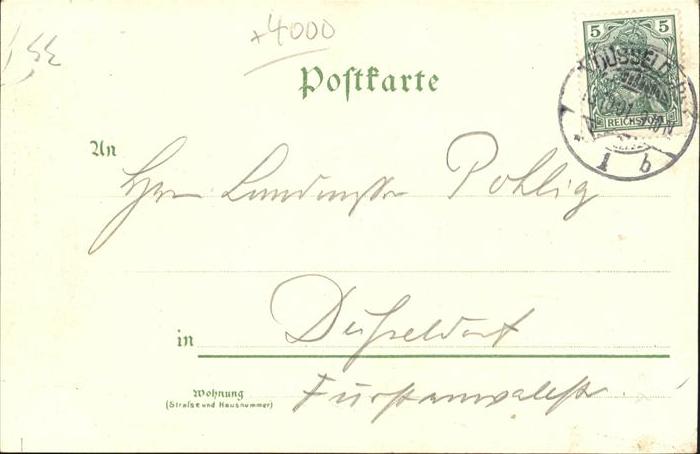 +4000
5 5
REICHSPOST
DÜSSELDORF
1 b
Postkarte
An
Herrn Landmesser Pohlig
in Düsseldorf
Wohnung
(Straße und Hausnummer)
Fürstenwallstr.